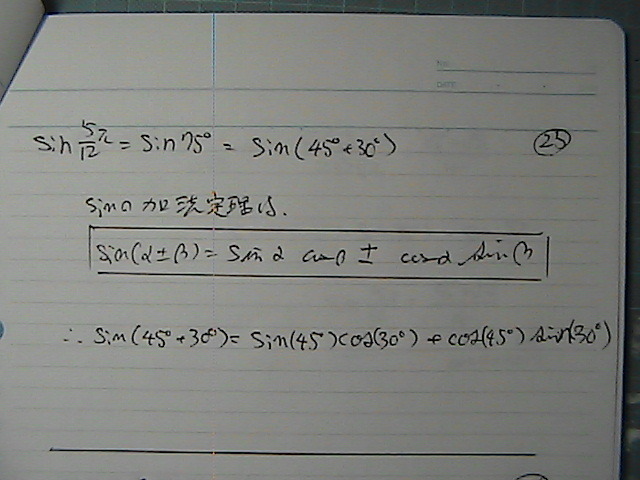 NO.
DATE
sin 5π/12 = sin75° = sin(45°+30°) ㉕
sinの加法定理は、
sin(α±β) = sinα cosβ ± cosα sinβ
∴ sin(45°+30°) = sin(45°)cos(30°) + cos(45°)sin(30°)